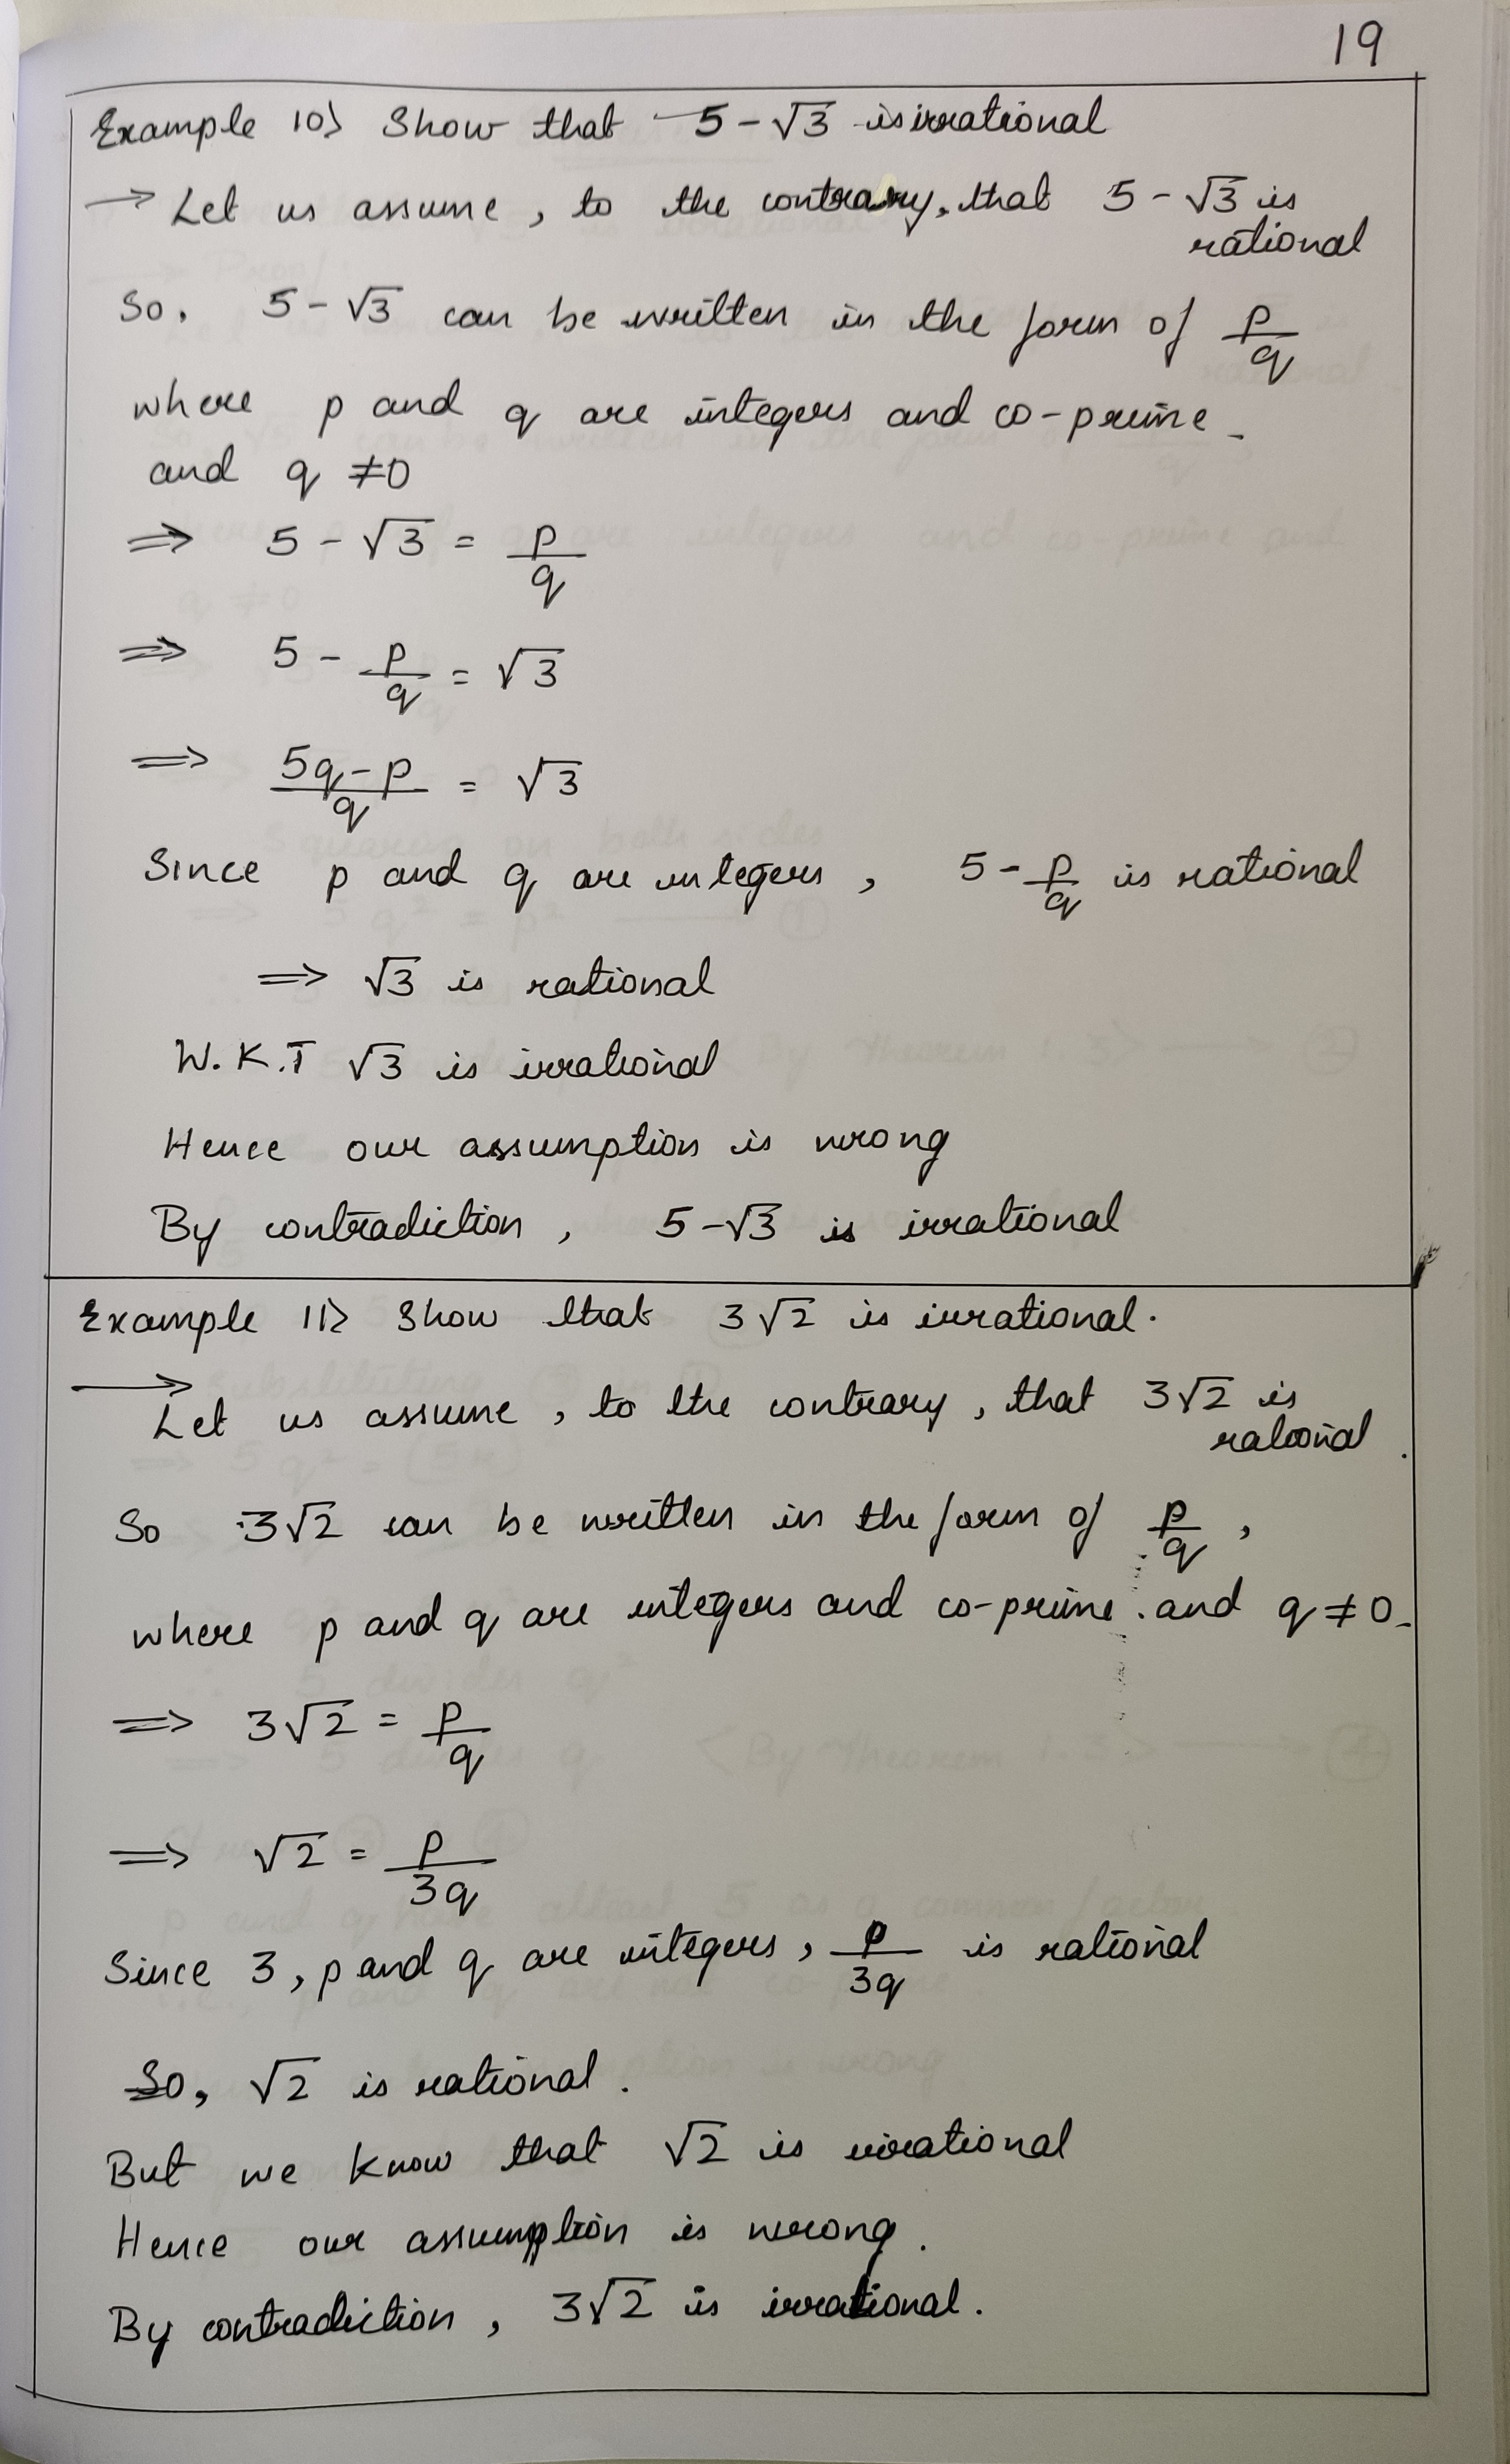 19
Example 10> Show that 5 - √3 is irrational
→ Let us assume, to the contrary, that 5 - √3 is
rational
So, 5 - √3 can be written in the form of p/q
where p and q are integers and co-prime
and q ≠ 0
⇒ 5 - √3 = p/q
⇒ 5 - p/q = √3
⇒ (5q - p)/q = √3
Since p and q are integers, 5 - p/q is rational
⇒ √3 is rational
W.K.T √3 is irrational
Hence our assumption is wrong
By contradiction, 5 - √3 is irrational
Example 11> Show that 3√2 is irrational.
→ Let us assume, to the contrary, that 3√2 is
rational.
So 3√2 can be written in the form of p/q,
where p and q are integers and co-prime and q ≠ 0.
⇒ 3√2 = p/q
⇒ √2 = p/3q
Since 3, p and q are integers, p/3q is rational
So, √2 is rational.
But we know that √2 is irrational
Hence our assumption is wrong.
By contradiction, 3√2 is irrational.